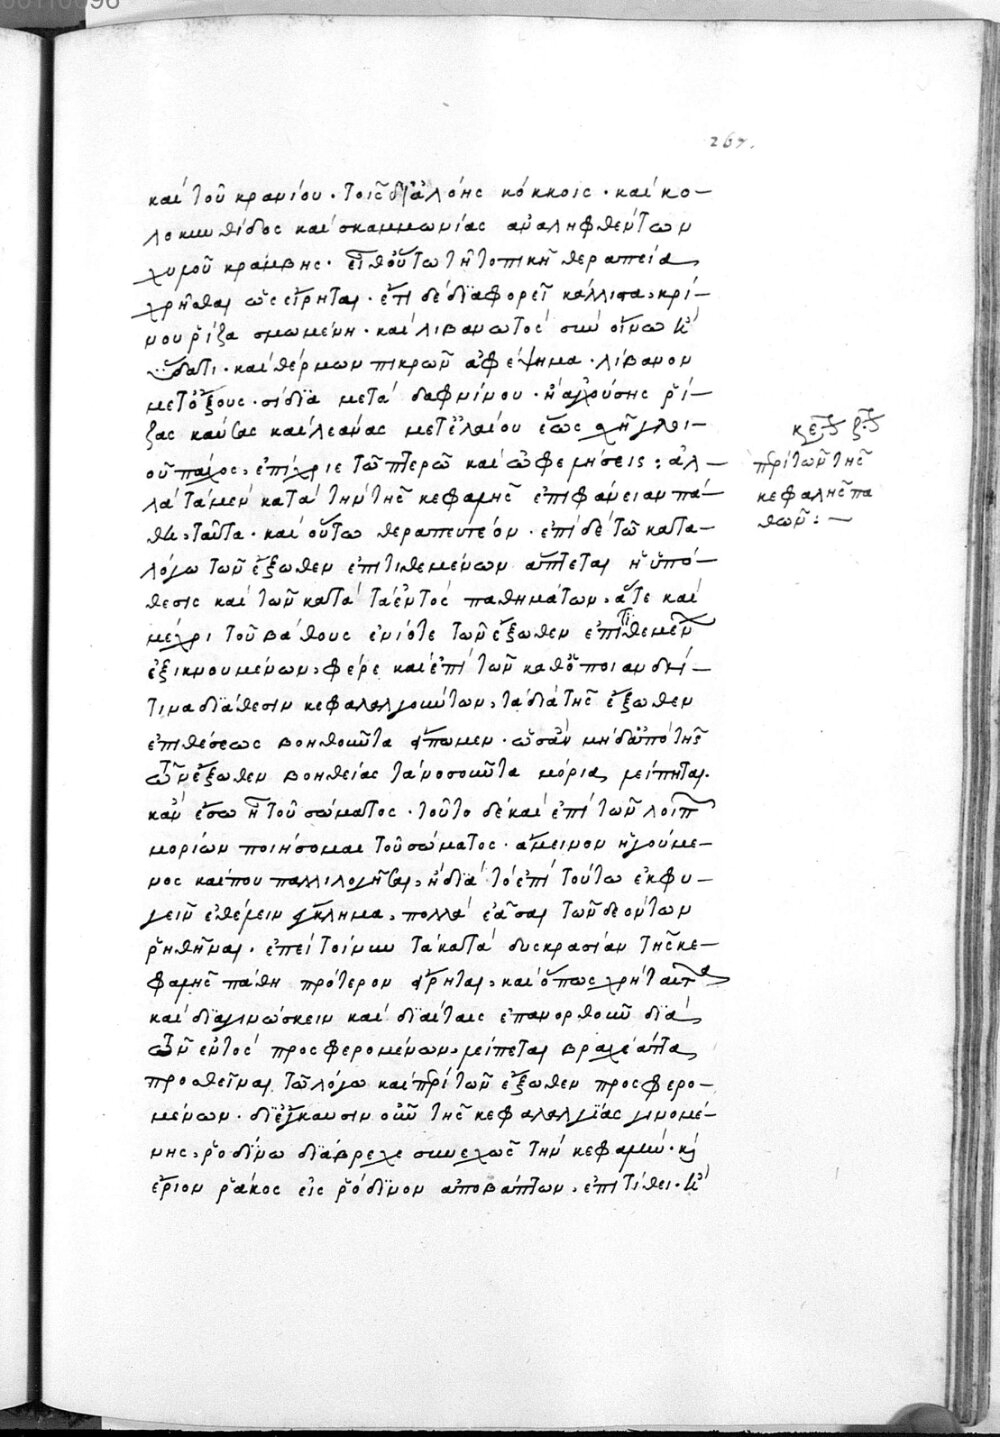 267.
καὶ τοῦ κρανίου · τοῖς δι' ἀλόης κόκκοις · καὶ κο-
λοκυνθίδος καὶ σκαμμωνίας ἀναληφθέντων
χυμοῦ κράμβης · εἶθ' οὕτω τῆ τοπικῆ θεραπεία
χρῆσθαι ὡς εἴρηται · ἔτι δὲ διαφορεῖ κάλλιστα, κρί-
νου ῥίζα σμωμένη · καὶ λιβανωτὸς σὺν οἴνω καὶ
ὕδατι · καὶ θέρμων πικρῶν ἀφέψημα · λίβανον
μετ' ὄξους · σίδια μετὰ δαφνίνου · ἢ ἀγχούσης ῥί-
ζας καύσας καὶ λεάνας μετ' ἐλαίου ἕως σχῆ γλοι-
οῦ πάχος, ἐπίχριε τῶ πτερῶ καὶ ὠφελήσεις : ἀλ-
λὰ τὰ μὲν κατὰ τὴν τῆς κεφαλῆς ἐπιφάνειαν πά-
θη, ταῦτα · καὶ οὕτω θεραπευτέον · ἐπὶ δὲ τῶ κατα-
λόγω τῶν ἔξωθεν ἐπιτιθεμένων ἅπτεται ἡ ὑπό-
θεσις καὶ τῶν κατὰ τὰ ἐντὸς παθημάτων, ἅτε καὶ
μέχρι τοῦ βάθους ἐνίοτε τῶν ἔξωθεν ἐπιτιθεμένων
ἐξικνουμένων, φέρε καὶ ἐπὶ τῶν καθ' ὁποιανδή-
τινα διάθεσιν κεφαλαλγούντων, τὰ διὰ τῆς ἔξωθεν
ἐπιθέσεως βοηθοῦντα εἴπωμεν · ὡς ἂν μηδ' ἀπὸ τῆς
τῶν ἔξωθεν βοηθείας τὰ νοσοῦντα μόρια λείπηται.
κἂν ἔσω ἦ τοῦ σώματος · τοῦτο δὲ καὶ ἐπὶ τῶν λοιπῶν
μορίων ποιήσομαι τοῦ σώματος · ἄμεινον ἡγούμε-
νος καί που παλλιλογῆσαι, ἢ διὰ τὸ ἐπὶ τούτω ἐκφυ-
γεῖν ἐθέλειν ἔγκλημα, πολλὰ ἐᾶσαι τῶν δεόντων
ῥηθῆναι · ἐπεὶ τοίνυν τὰ κατὰ δυσκρασίαν τῆς κε-
φαλῆς πάθη πρότερον εἴρηται, καὶ ὅπως χρὴ ταῦτα
καὶ διαγινώσκειν καὶ διαίταις ἐπανορθοῦν διὰ
τῶν ἐντὸς προσφερομένων, λείπεται βραχέ' ἄττα
προσθεῖναι τῶ λόγω καὶ περὶ τῶν ἔξωθεν προσφερο-
μένων · δι' ἔγκαυσιν οὖν τῆς κεφαλαλγίας γινομέ-
νης, ῥοδίνω διάβρεχε συνεχῶς τὴν κεφαλήν · καὶ
ἔριον ῥάκος εἰς ῥόδινον ἀποβάπτων, ἐπιτίθει · καὶ
περὶ τῶν τῆς
κεφαλῆς πα
θῶν : —